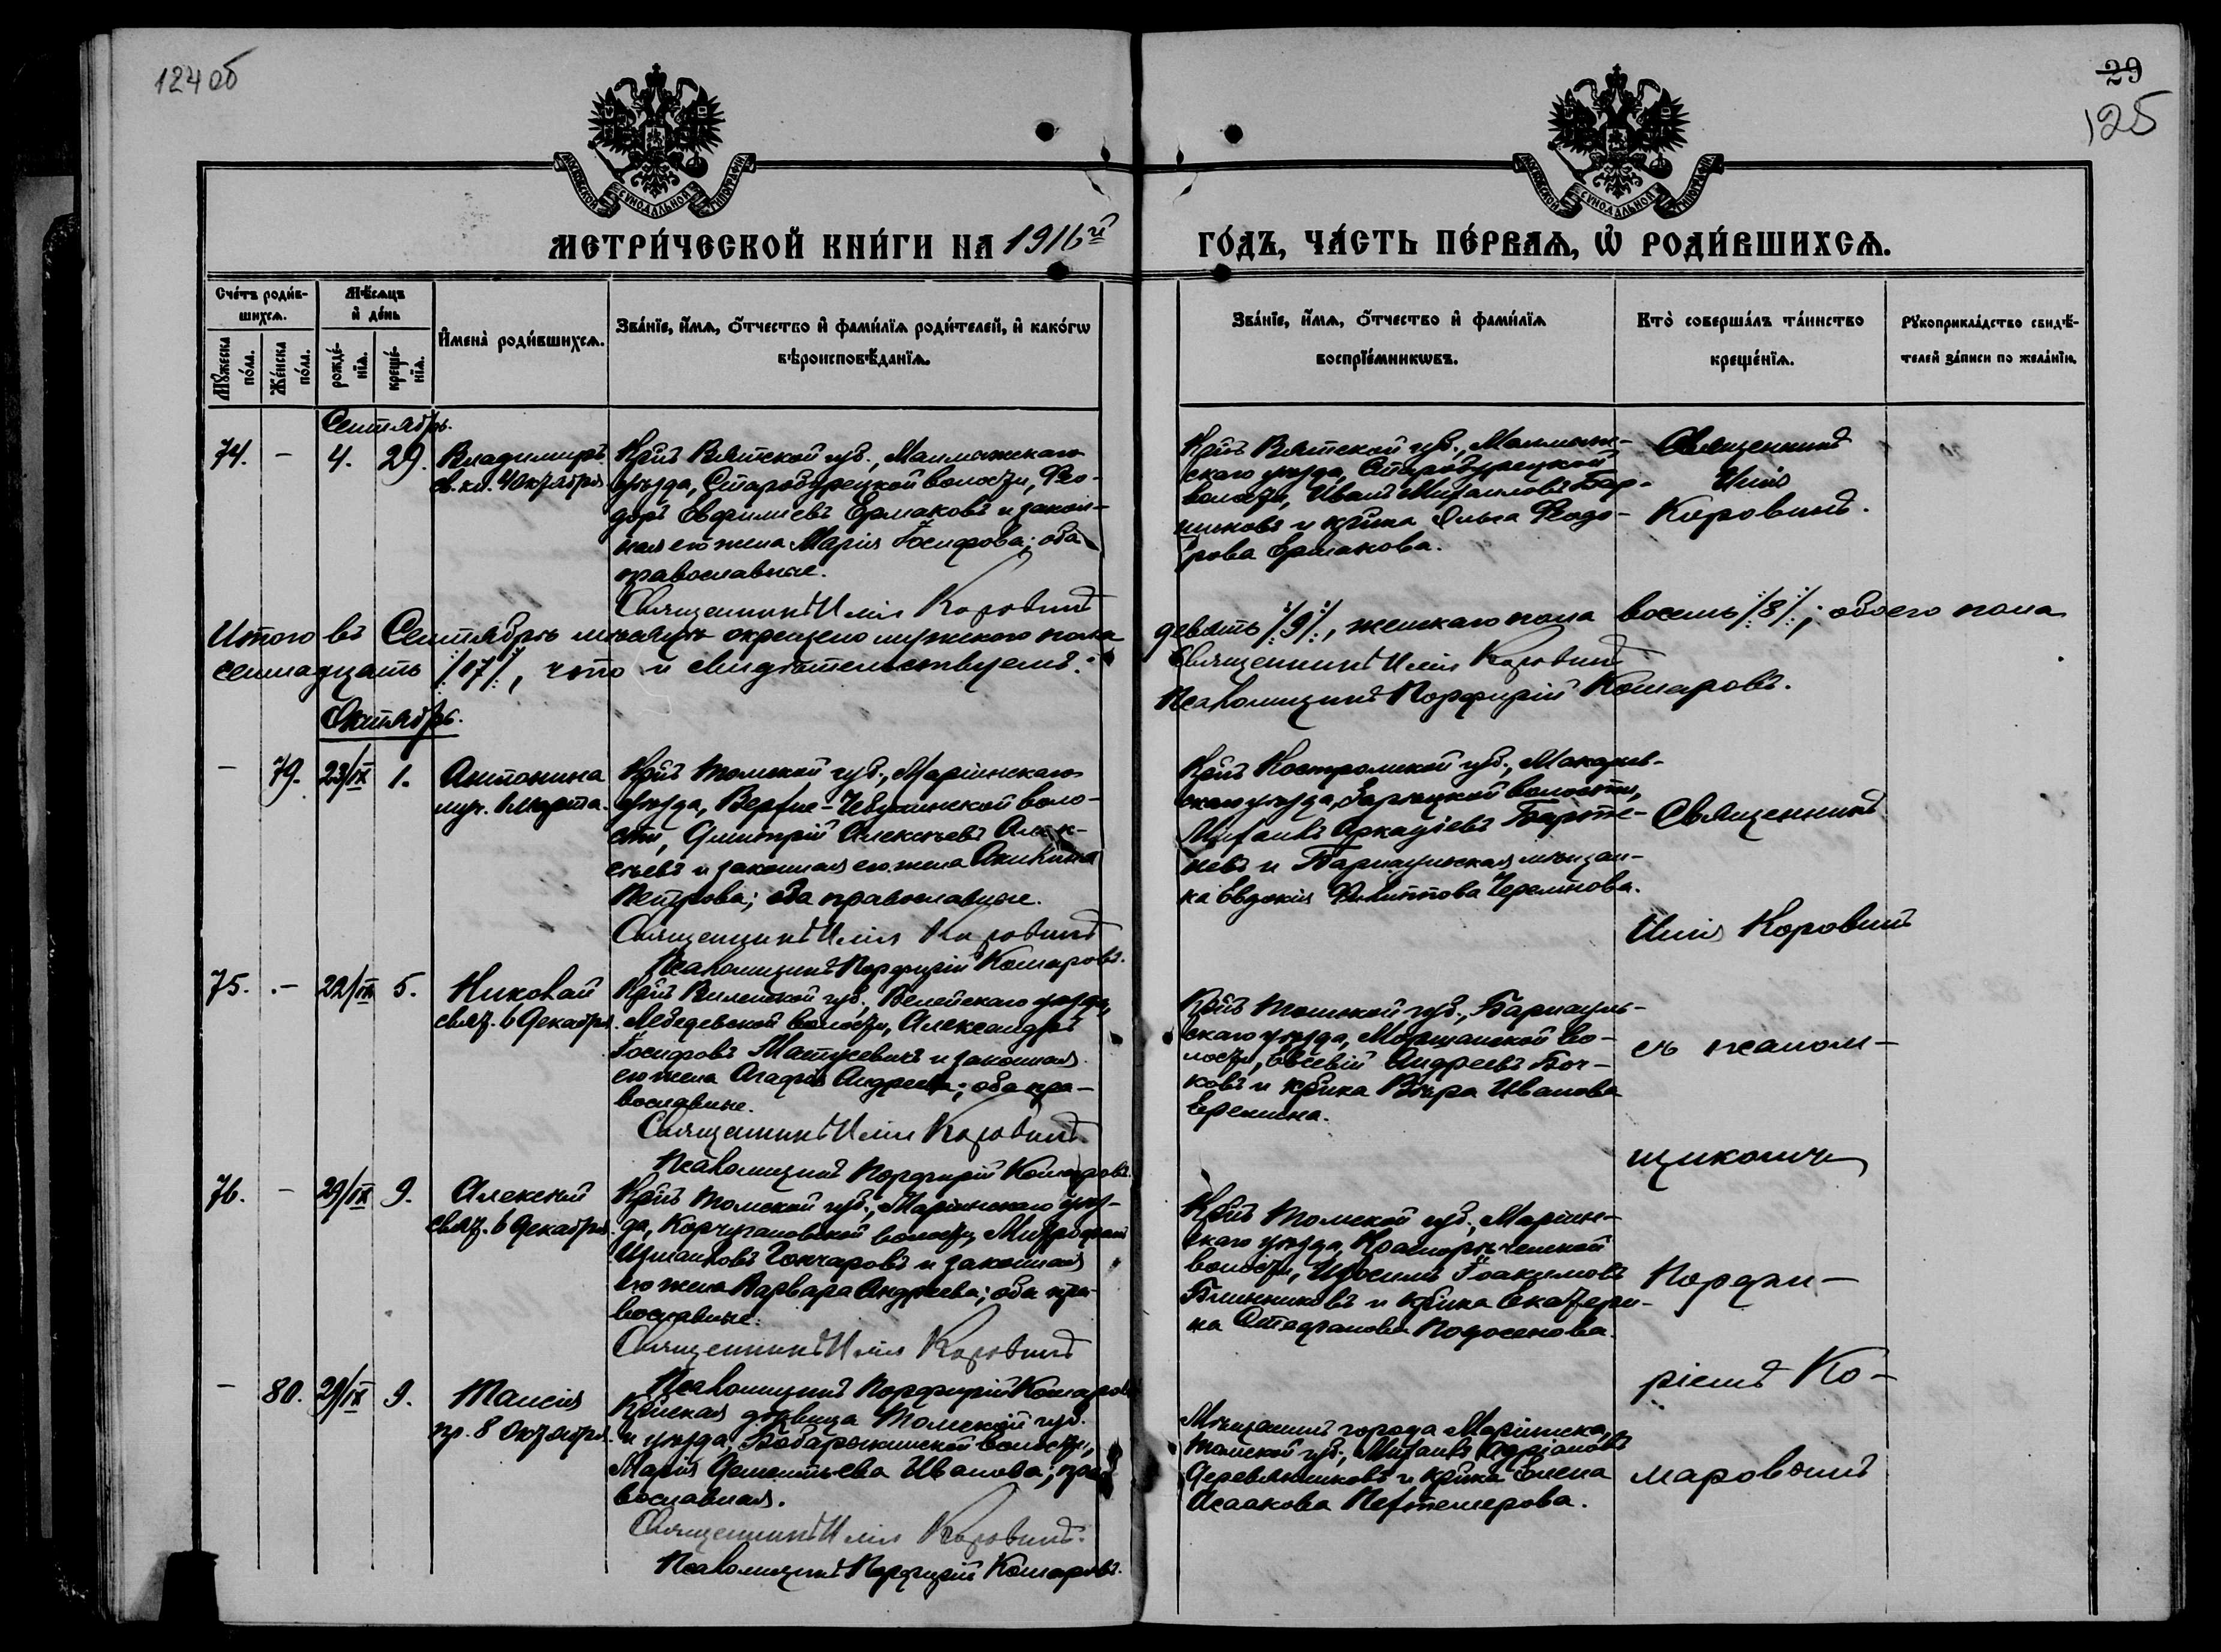 124 об
29
125
МОСКОВСКОЙ СѴНОДАЛЬНОЙ ТИПОГРАФІИ
МОСКОВСКОЙ СѴНОДАЛЬНОЙ ТИПОГРАФІИ
МЕТРИ́ЧЕСКОЙ КНИ́ГИ НА 1916й
ГО́ДЪ, ЧА́СТЬ ПЕ́РВАѦ, Ѡ РОДИ́ВШИХСѦ.
Сче́тъ роди́в-
шихсѧ.
Мꙋ́жеска по́ла.
Же́нска по́ла.
Мѣ́сѧцъ
и де́нь
рожде́-
нїѧ.
креще́-
нїѧ.
Имена̀ роди́вшихсѧ.
Зва́нїе, и́мѧ, о́тчество и фами́лїѧ роди́телей, и како́гѡ
вѣроисповѣ́данїѧ.
Зва́нїе, и́мѧ, о́тчество и фами́лїѧ
воспрїе́мникѡвъ.
Кто̀ соверша́лъ та́инство
креще́нїѧ.
Рꙋкоприкла́дство свидѣ́-
телей за́писи по жела́нїю.
Сентябрь.
74. - 4. 29. Владимиръ
св. кн. 4 октября
Крнъ Вятской губ., Малмыжскаго
уѣзда, Старобурецкой волости, Ѳео-
доръ Евфиміевъ Ермаковъ и закон-
ная его жена Марія Іосифова; оба
православные.
Священникъ Илія Коровинъ
Крнъ Вятской губ., Малмыж-
скаго уѣзда, Старобурецкой
волости, Иванъ Михаиловъ
и крнка Ольга Ѳеодо-
рова Ермакова.
Священникъ
Илія
Коровинъ.
Итого въ Сентябрѣ мѣсяцѣ окрещено мужескаго пола
девять /9/, женскаго пола восемь /8/; обоего пола
семнадцать /17/, что и свидѣтельствуемъ:
Священникъ Илія Коровинъ
Псаломщикъ Порфирій Комаровъ.
Октябрь.
- 79. 23/IX 1. Антонина
муч. 1 марта.
Крнъ Томской губ., Маріинскаго
уѣзда, Верхне-Чебулинской воло-
сти, Димитрій Алексѣевъ Алек-
сѣевъ и законная его жена Акилина
Петрова; оба православные.
Священникъ Илія Коровинъ
Псаломщикъ Порфирій Комаровъ.
Крнъ Костромской губ., Макарьев-
скаго уѣзда, волости,
Михаилъ Аркадіевъ
и Барнаульская мѣщан-
ка Евдокія Филиппова
Священникъ
Илія Коровинъ
75. - 22/IX 5. Николай
свят. 6 декабря.
Крнъ Виленской губ., Вилейскаго уѣзда,
Лебедевской волости, Александръ
Іосифовъ Матусевичъ и законная
его жена Агафія Андреева; оба пра-
вославные.
Священникъ Илія Коровинъ
Псаломщикъ Порфирій Комаровъ.
Крнъ Томской губ., Барнауль-
скаго уѣзда, во-
лости, Евсевій Андреевъ Боч-
ковъ и крнка Вѣра Иванова
Еремина.
съ псалом-
щикомъ
76. - 29/IX 9. Алексѣй
свят. 6 декабря.
Крнъ Томской губ., Маріинскаго уѣз-
да, волости, Митрофанъ
Измаиловъ Гончаровъ и законная
его жена Варвара Андреева; оба пра-
вославные.
Священникъ Илія Коровинъ
Псаломщикъ Порфирій Комаровъ
Крнъ Томской губ., Маріин-
скаго уѣзда, Краснорѣченской
волости, Изосимъ Іоакимовъ
Блинниковъ и крнка Екатери-
на Стефанова
Порфи-
ріемъ Ко-
маровымъ
- 80. 29/IX 9. Таисія
пр. 8 октября.
Крнская дѣвица Томской губ.
и уѣзда, Бобарыкинской волости,
Марія Дементьева Иванова; пра-
вославная.
Священникъ Илія Коровинъ.
Псаломщикъ Порфирій Комаровъ.
Мѣщанинъ города Маріинска,
Томской губ., Михаилъ Адріановъ
Деревянниковъ и крнка Елена
Исаакова